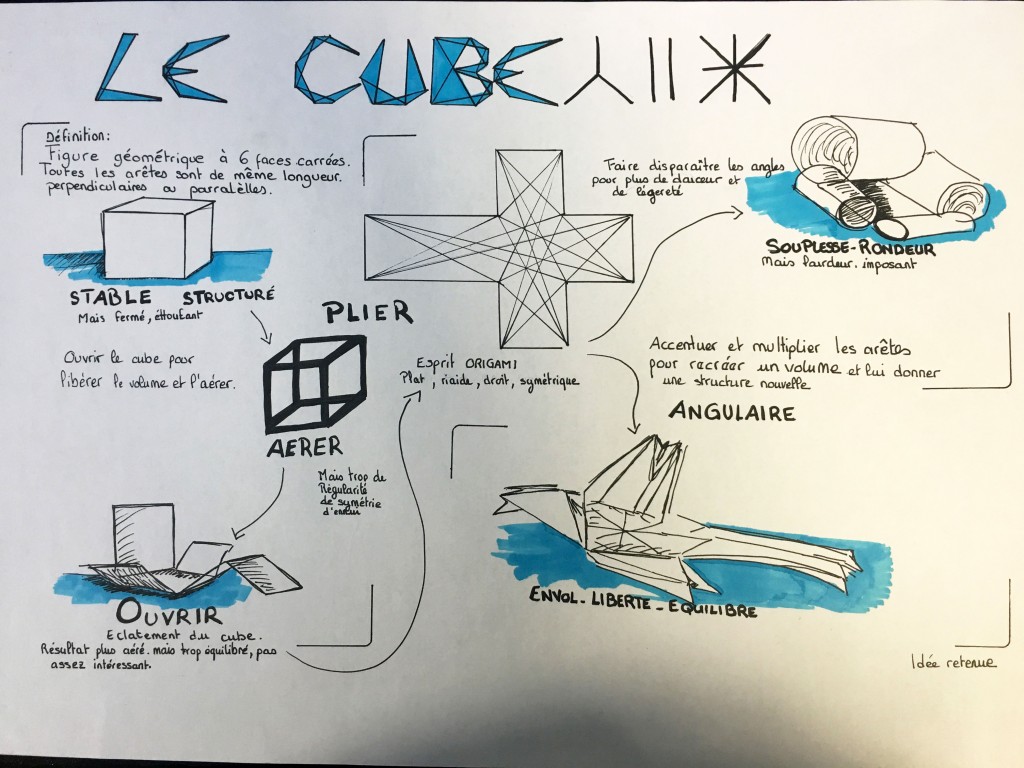 LE CUBE
Définition:
Figure géométrique à 6 faces carrées.
Toutes les arêtes sont de même longueur.
perpendiculaires ou parralèlles.
STABLE STRUCTURÉ
Mais fermé, éttoufant
Ouvrir le cube pour
libérer le volume et l'aérer.
AERER
Mais trop de
Régularité
de symétrie
d'ennui
OUVRIR
Eclatement du cube.
Résultat plus aéré. mais trop équilibré, pas
assez intéressant.
PLIER
Esprit ORIGAMI
Plat, riaide, droit, symétrique
Faire disparaître les angles
pour plus de douceur et
de légereté
SOUPLESSE-RONDEUR
Mais lourdeur. imposant
Accentuer et multiplier les arêtes
pour racréer un volume et lui donner
une structure nouvelle
ANGULAIRE
ENVOL - LIBERTE - EQUILIBRE
Idée retenue